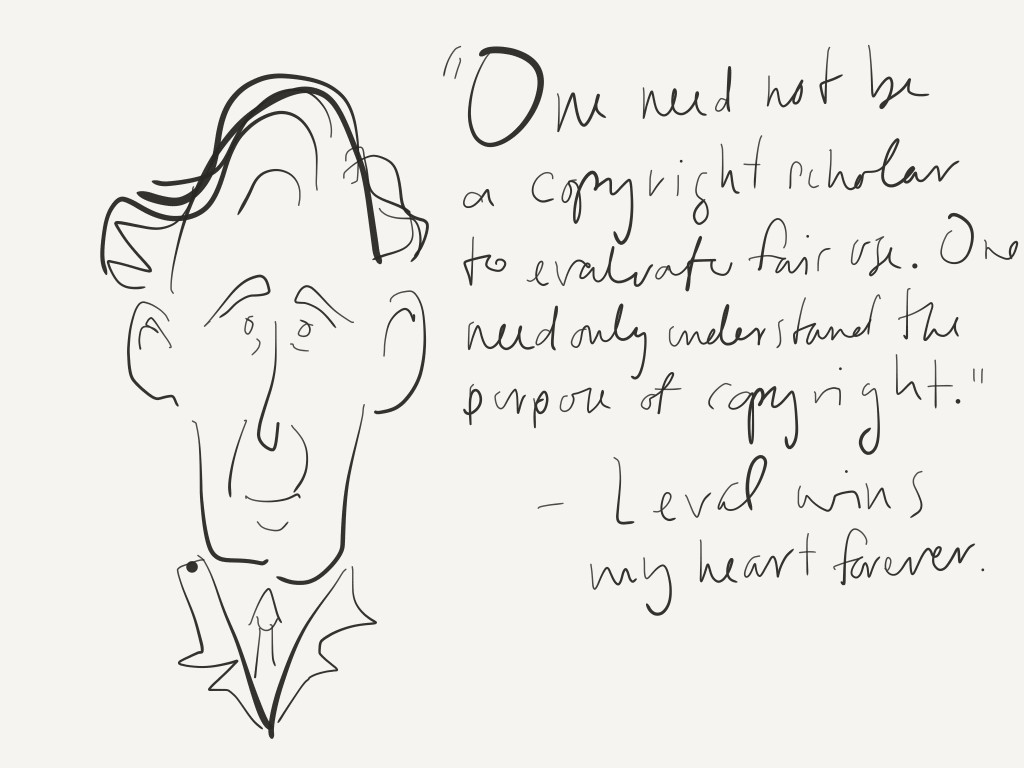 "One need not be
a copyright scholar
to evaluate fair use. One
need only understand the
purpose of copyright."
- Leval wins
my heart forever.